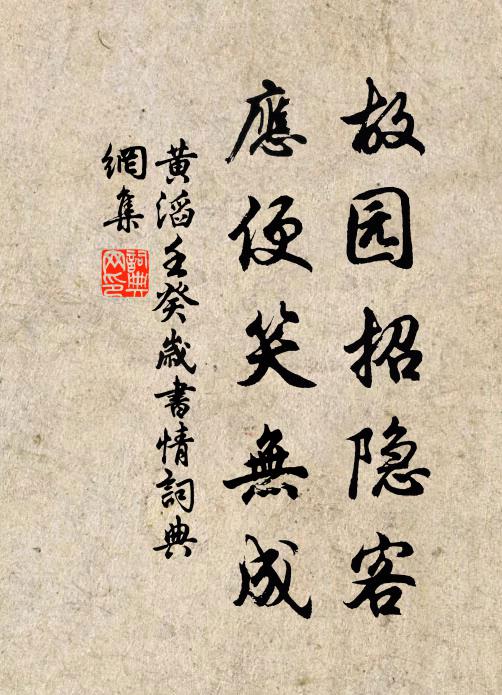 故园招隐客
應便笑無成
黄滔壬癸歲書情詞典
網集
詞典网印